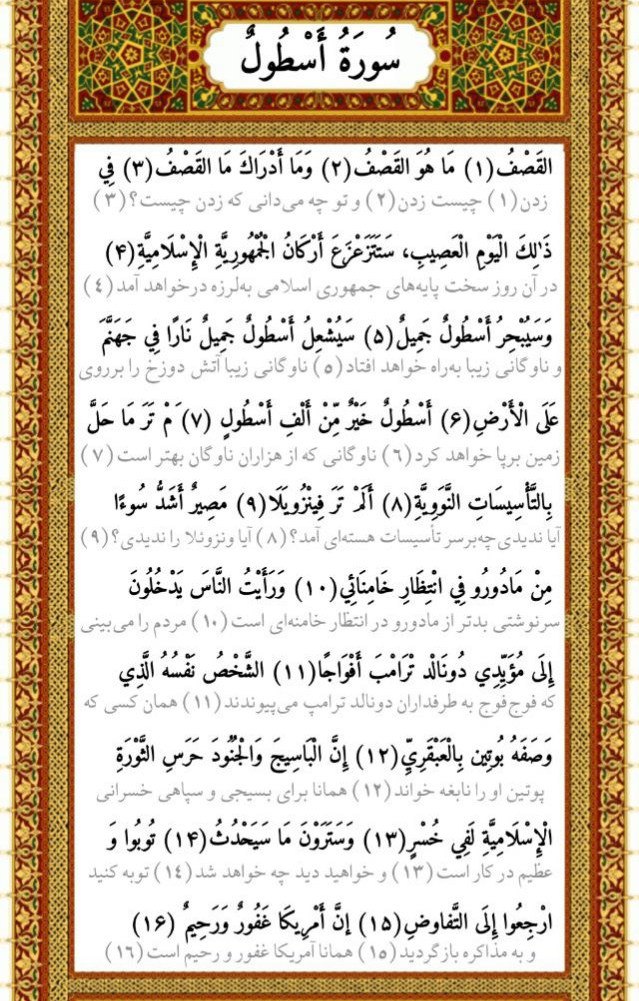 سُورَةُ أَسْطُولٌ
القَصْفُ(۱) مَا هُوَ القَصْفُ(۲) وَمَا أَدْرَاكَ مَا القَصْفُ(۳) فِي
زدن(۱) چیست زدن(۲) و تو چه می‌دانی که زدن چیست؟(۳)
ذَٰلِكَ الْيَوْمِ الْعَصِيبِ، سَتَتَزَعْزَعَ أَرْكَانُ الْجُمْهُورِيَّةِ الْإِسْلَامِيَّةِ(۴)
در آن روز سخت پایه‌های جمهوری اسلامی به‌لرزه درخواهد آمد(٤)
وَسَيُبْحِرُ أَسْطُولٌ جَمِيلٌ(۵) سَيُشْعِلُ أَسْطُولٌ جَمِيلٌ نَارًا فِي جَهَنَّمَ
و ناوگانی زیبا به‌راه خواهد افتاد(٥) ناوگانی زیبا آتش دوزخ را برروی
عَلَى الْأَرْضِ(۶) أَسْطُولٌ خَيْرٌ مِّنْ أَلْفِ أَسْطُولٍ (۷) َمْ تَرَ مَا حَلَّ
زمین برپا خواهد کرد(٦) ناوگانی که از هزاران ناوگان بهتر است(۷)
بِالتَّأْسِيسَاتِ النَّوَوِيَّةِ(۸) أَلَمْ تَرَ فِينْزُوِيَلَا(۹) مَصِيرٌ أَشَدُّ سُوءًا
آیا ندیدی چه‌برسر تأسیسات هسته‌ای آمد؟(۸) آیا ونزوئلا را ندیدی؟(۹)
مِنْ مَادُورُو فِي انْتِظَارِ خَامِنَائِي(۱۰) وَرَأَيْتُ النَّاسَ يَدْخُلُونَ
سرنوشتی بدتر از مادورو در انتظار خامنه‌ای است(۱۰) مردم را می‌بینی
إِلَى مُؤَيِّدِي دُونَالْد تَرَامْبَ أَفْوَاجًا(۱۱) الشَّخْصُ نَفْسُهُ الَّذِي
که فوج‌فوج به طرفداران دونالد ترامپ می‌پیوندند(۱۱) همان کسی که
وَصَفَهُ بُوتِين بِالْعَبْقَرِيِّ(۱۲) إِنَّ الْبَاسِيجَ وَالْجُنُودَ حَرَسِ الثَّوْرَةِ
پوتین او را نابغه خواند(۱۲) همانا برای بسیجی و سپاهی خسرانی
الْإِسْلَامِيَّةِ لَفِي خُسْرٍ(۱۳) وَسَتَرَوْنَ مَا سَيَحْدُثُ(۱۴) تُوبُوا وَ
عظیم در کار است(۱۳) و خواهید دید چه خواهد شد(١٤) توبه کنید
ارْجِعُوا إِلَى التَّفَاوضِ(۱۵) إِنَّ أَمْرِيكَا غَفُورٌ وَرَحِيمٌ (۱۶)
و به مذاکره بازگردید(١٥) همانا آمریکا غفور و رحیم است(١٦)